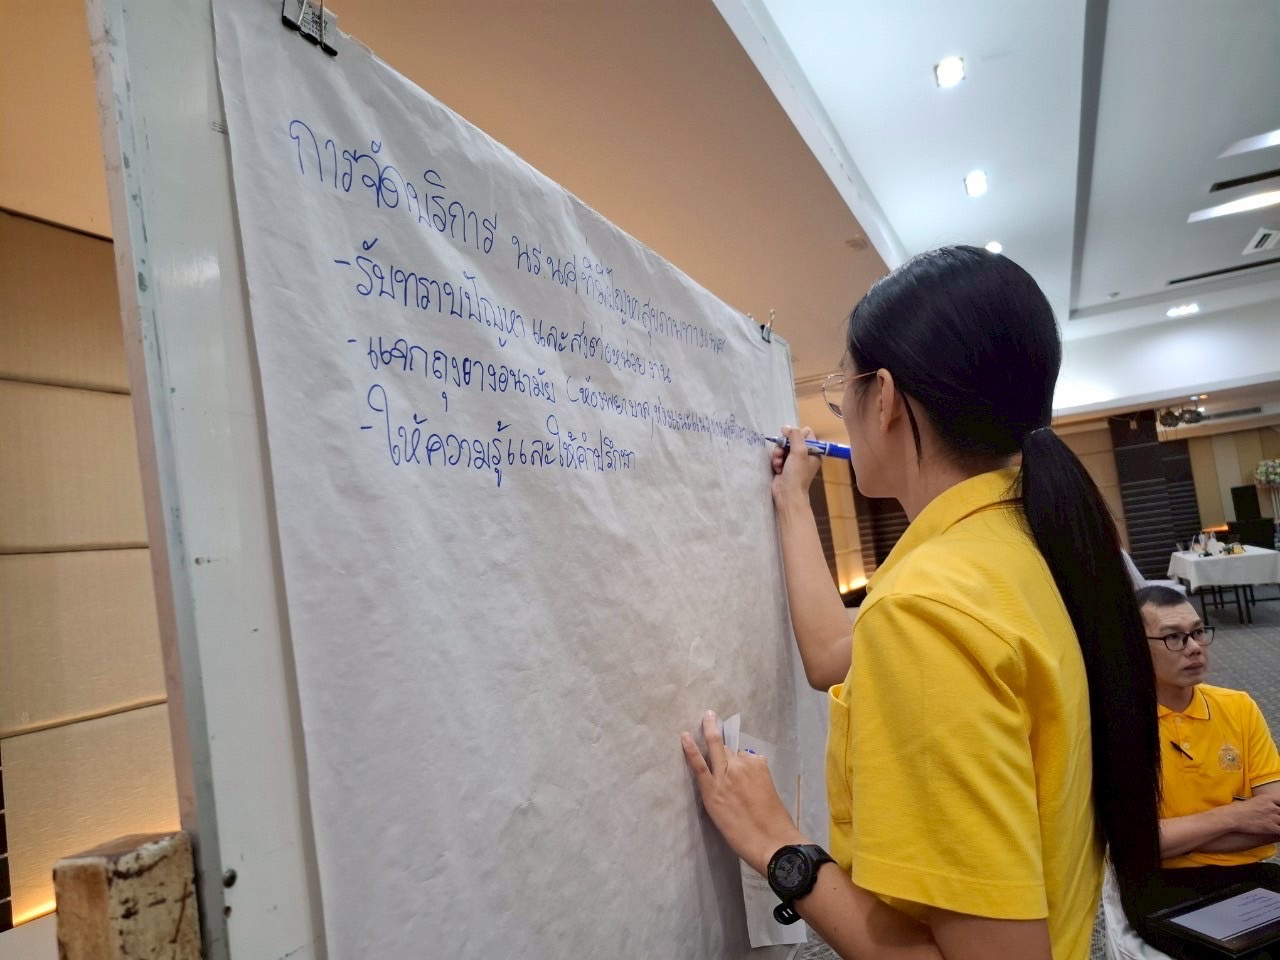 การจัดบริการ นร นศ ที่มีปัญหาสุขภาพทางเพศ
- รับทราบปัญหา และส่งต่อหน่วยงาน
- แจกถุงยางอนามัย (ห้องพยาบาล, ห้องแนะแนว,
- ให้ความรู้และให้คำปรึกษา